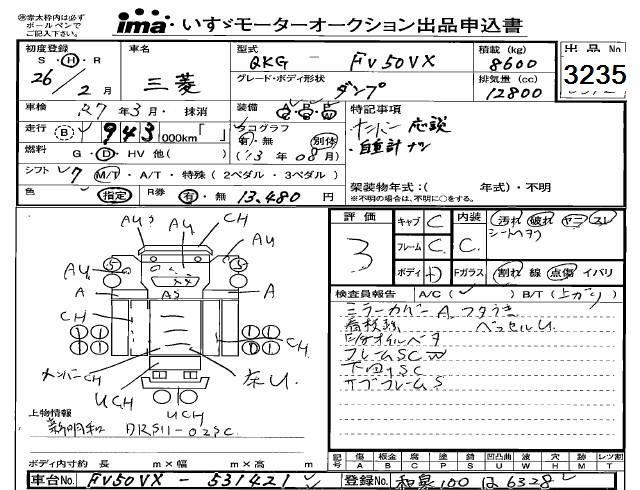 ㊟赤太枠内は必ず
ボールペンで
ご記入下さい。
ima いすゞモーターオークション出品申込書
初度登録 車名 型式 積載 (kg) 出品No
S・H・R QKG - FV50VX 8600
26/2月 三菱 グレード・ボディ形状 ダンプ 排気量 (cc) 12800
3235
車検 R7年3月・抹消 装備 特記事項
走行 (B) 943,000km「 」 タコグラフ ナンバー応談
有・無 別体 ・自重計ナシ
燃料 G・D・HV 他( ) ('13年08月)
シフト 7 M/T・A/T・特殊(2ペダル・3ペダル) 架装物年式:( 年式)・不明
※不明の場合は、不明に○をする。
色 指定 R券 有・無 13,480円
評価 キャブ C 内装 汚れ 破れ ヤニ スレ
3 シートヘタリ
フレーム C C
ボディ D Fガラス 割れ 線 点傷 イバリ
検査員報告 A/C( ) B/T(上がり)
ミラーカバーA フタうき
看板跡 ベッセルU
E/gオイルベタ
フレームSCW
下回りSC
サブフレームS
AU CH
AU
AU AU
S S
A AS A
CH CH
メンバーCH 床U
UCH UCH
上物情報
新明和 DRS11-02SC
ボディ内寸約 長 m×幅 m×高 m
記号 傷 板金 腐 塗 錆 凹凸曲 凹 穴 跡 レツ割
A B C P S U W H M T
車台No. FV50VX - 531421 登録No. 和泉100は6328